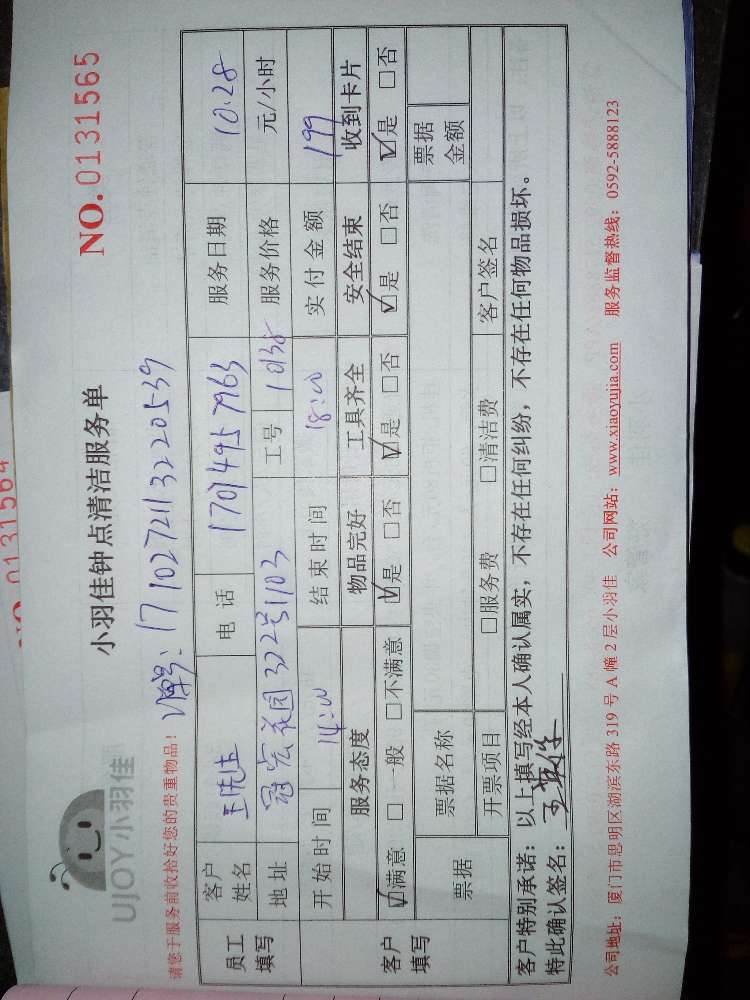 NO. 0131564
UJOY小羽佳
小羽佳钟点清洁服务单
NO. 0131565
请您于服务前收拾好您的贵重物品!
单号:17102721132220539
员工填写
客户姓名
王先生
电话
17014957963
服务日期
10.28
地址
冠宏花园322号1103
工号
1038
服务价格
元/小时
开始时间
14:00
结束时间
18:00
实付金额
199
客户填写
服务态度
物品完好
工具齐全
安全结束
收到卡片
☑满意 □一般 □不满意
☑是 □否
☑是 □否
☑是 □否
☑是 □否
票据
票据名称
票据金额
开票项目
□服务费 □清洁费
客户签名
客户特别承诺:以上填写经本人确认属实,不存在任何纠纷,不存在任何物品损坏。
特此确认签名:
公司地址:厦门市思明区湖滨东路319号A幢2层小羽佳 公司网站:www.xiaoyujia.com 服务监督热线:0592-5888123